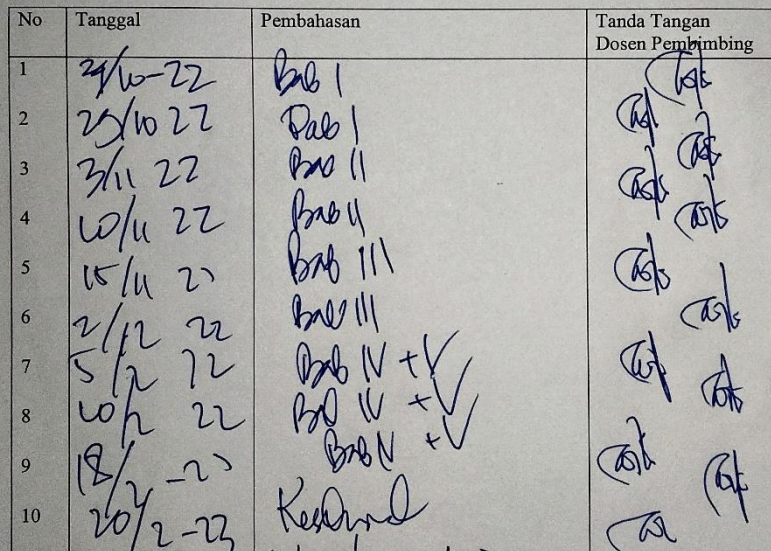 No Tanggal Pembahasan Tanda Tangan
Dosen Pembimbing
1 Bab I
2 25/10 22 Bab I
3 3/11 22 Bab II
4 10/11 22 Bab II
5 15/11 Bab III
6 2/12 22 Bab III
7 5/2 22 Bab IV + V
8 10/2 22 Bab IV + V
9 18/2 Bab IV + V
10 20/2-23